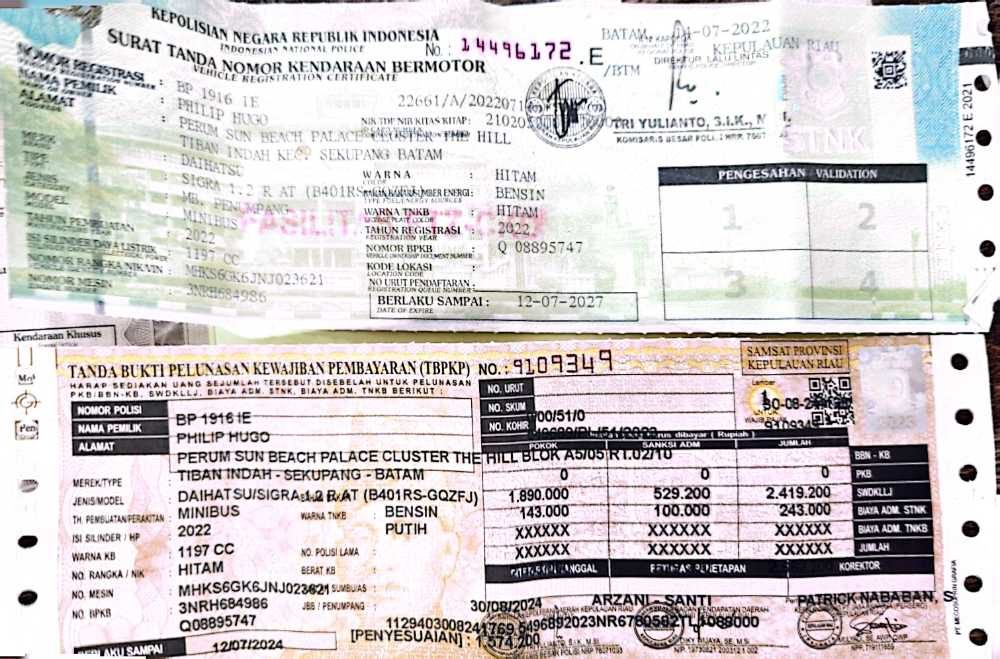 KEPOLISIAN NEGARA REPUBLIK INDONESIA
INDONESIAN NATIONAL POLICE
SURAT TANDA NOMOR KENDARAAN BERMOTOR
VEHICLE REGISTRATION CERTIFICATE
No. : 14496172 .E
BATAM, 04-07-2022
KEPULAUAN RIAU
DIREKTUR LALU LINTAS
/BTM
TRI YULIANTO, S.I.K.,
KOMISARIS BESAR POLISI NRP
STNK
14496172 E 2021
NOMOR REGISTRASI : BP 1916 IE
NAMA PEMILIK : PHILIP HUGO
22661/A/2022071
NIK TDP NIB KITAS KITAP :
ALAMAT : PERUM SUN BEACH PALACE CLUSTER THE HILL
TIBAN INDAH KEC. SEKUPANG BATAM
MERK : DAIHATSU
TIPE : SIGRA 1.2 R AT
JENIS : MB. PENUMPANG
MODEL : MINIBUS
TAHUN PEMBUATAN : 2022
ISI SILINDER DAYA LISTRIK : 1197 CC
NOMOR RANGKA/NIK/VIN : MHKS6GK6JNJ023621
NOMOR MESIN : 3NRH684986
WARNA : HITAM
COLOR
BENSIN
TYPE FUEL/ENERGY SOURCES
WARNA TNKB : HITAM
LICENSE PLATE COLOR
TAHUN REGISTRASI : 2022
REGISTRATION YEAR
NOMOR BPKB : Q 08895747
VEHICLE OWNERSHIP DOCUMENT NUMBER
KODE LOKASI :
LOCATION CODE
NO URUT PENDAFTARAN :
REGISTRATION QUEUE NUMBER
BERLAKU SAMPAI : 12-07-2027
DATE OF EXPIRE
PENGESAHAN VALIDATION
1 2
3 4
Kendaraan Khusus
TANDA BUKTI PELUNASAN KEWAJIBAN PEMBAYARAN (TBPKP) NO.: 9109349
HARAP SEDIAKAN UANG SEJUMLAH TERSEBUT DISEBELAH UNTUK PELUNASAN
PKB/BBN-KB, SWDKLLJ, BIAYA ADM. STNK, BIAYA ADM. TNKB BERIKUT :
SAMSAT PROVINSI
KEPULAUAN RIAU
Lembar
1
2023
NO. URUT
NO. SKUM
NO. KOHIR
NOMOR POLISI BP 1916 IE
NAMA PEMILIK PHILIP HUGO
ALAMAT PERUM SUN BEACH PALACE CLUSTER THE HILL BLOK A5/05 RT.02/10
TIBAN INDAH - SEKUPANG - BATAM
MEREK/TYPE : DAIHATSU/SIGRA 1.2 R AT (B401RS-GQZFJ)
JENIS/MODEL : MINIBUS
BENSIN
TH. PEMBUATAN/PERAKITAN : 2022
WARNA TNKB : PUTIH
ISI SILINDER / HP : 1197 CC
NO. POLISI LAMA :
WARNA KB : HITAM
BERAT KB :
NO. RANGKA / NIK : MHKS6GK6JNJ023621
NO. MESIN : 3NRH684986
JBB / PENUMPANG :
NO. BPKB : Q08895747
BERLAKU SAMPAI 12/07/2024
POKOK SANKSI ADM JUMLAH
BBN - KB
PKB 1.890.000 529.200 2.419.200
SWDKLLJ 143.000 100.000 243.000
BIAYA ADM. STNK XXXXXX XXXXXX XXXXXX
BIAYA ADM. TNKB XXXXXX XXXXXX XXXXXX
JUMLAH
KOREKTOR
30/08/2024
ARZANI - SANTI
PATRICK NABABAN, S
[PENYESUAIAN] : 1.574.200